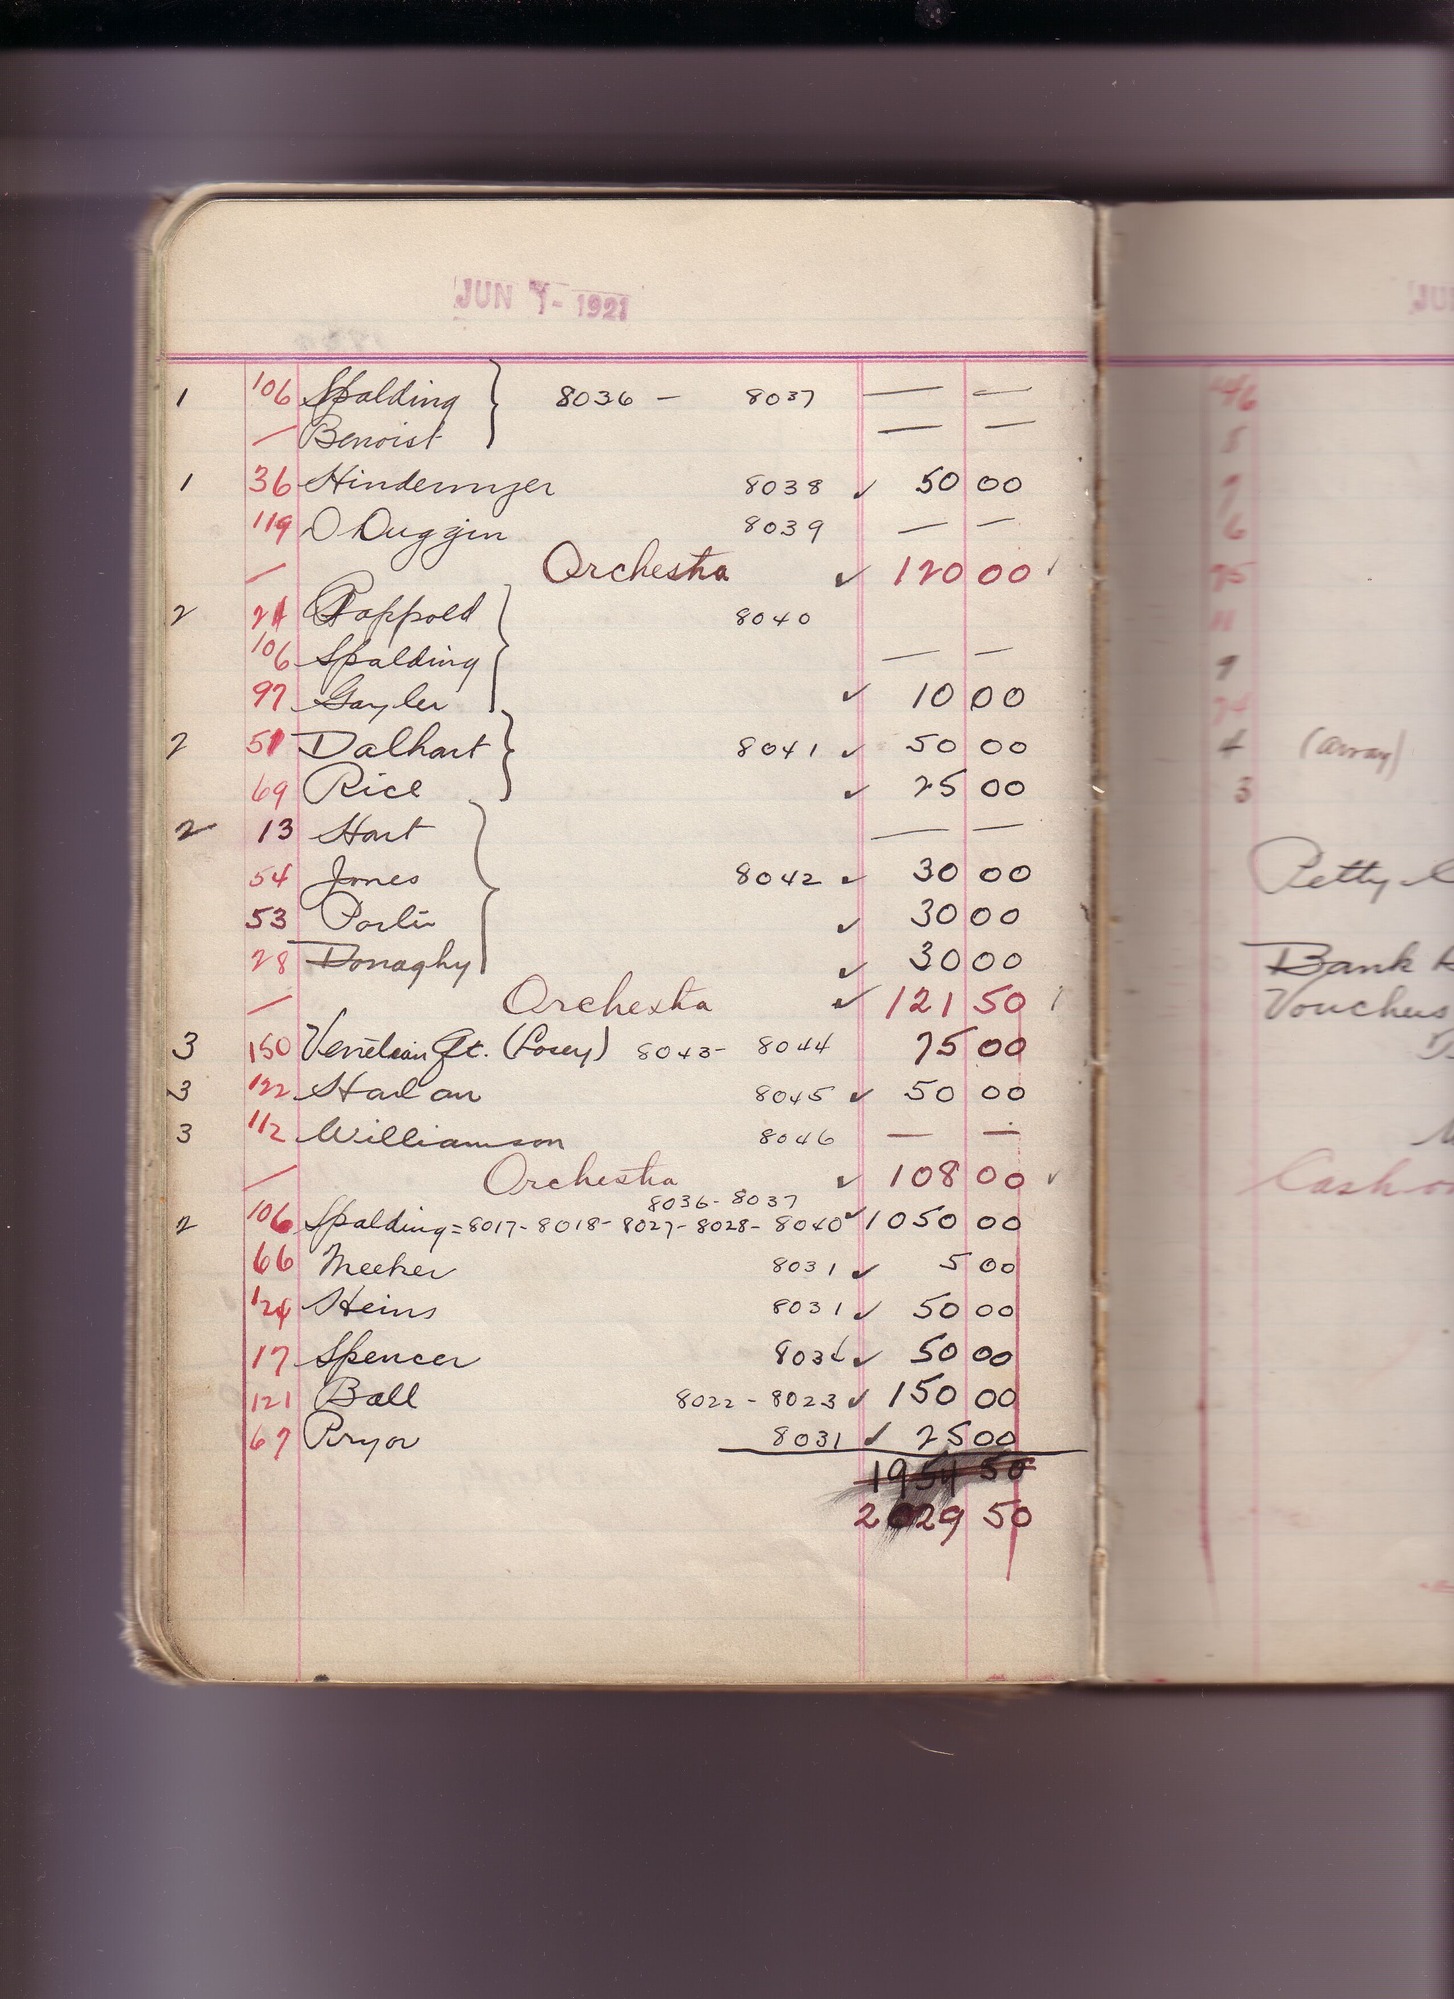 JUN 7- 1921
1 106 Spalding } 8036 - 8037 — —
— Benoist — —
1 36 Hindermyer 8038 ✓ 50 00
119 O Duggin 8039 — —
— Orchestra ✓ 120 00
2 21 Rappold } 8040
106 Spalding — —
97 Gayler ✓ 10 00
2 51 Dalhart } 8041 ✓ 50 00
69 Rice ✓ 25 00
2 13 Hart } — —
54 Jones 8042 ✓ 30 00
53 Porter ✓ 30 00
28 Donaghy ✓ 30 00
— Orchestra ✓ 121 50
3 150 Venetian Qt. (Posey) 8043- 8044 75 00
3 122 Harlan 8045 ✓ 50 00
3 112 Williamson 8046 — —
— Orchestra ✓ 108 00 ✓
8036- 8037
2 106 Spalding = 8017- 8018- 8027- 8028- 8040 ✓ 1050 00
66 Meeker 8031 ✓ 5 00
124 Heins 8031 ✓ 50 00
17 Spencer ✓ 50 00
121 Ball 8022 - 8023 ✓ 150 00
67 Pryor 8031 ✓ 25 00
1954 50
2029 50
JU
(array)
Petty
Bank
Vouchers
Cash o